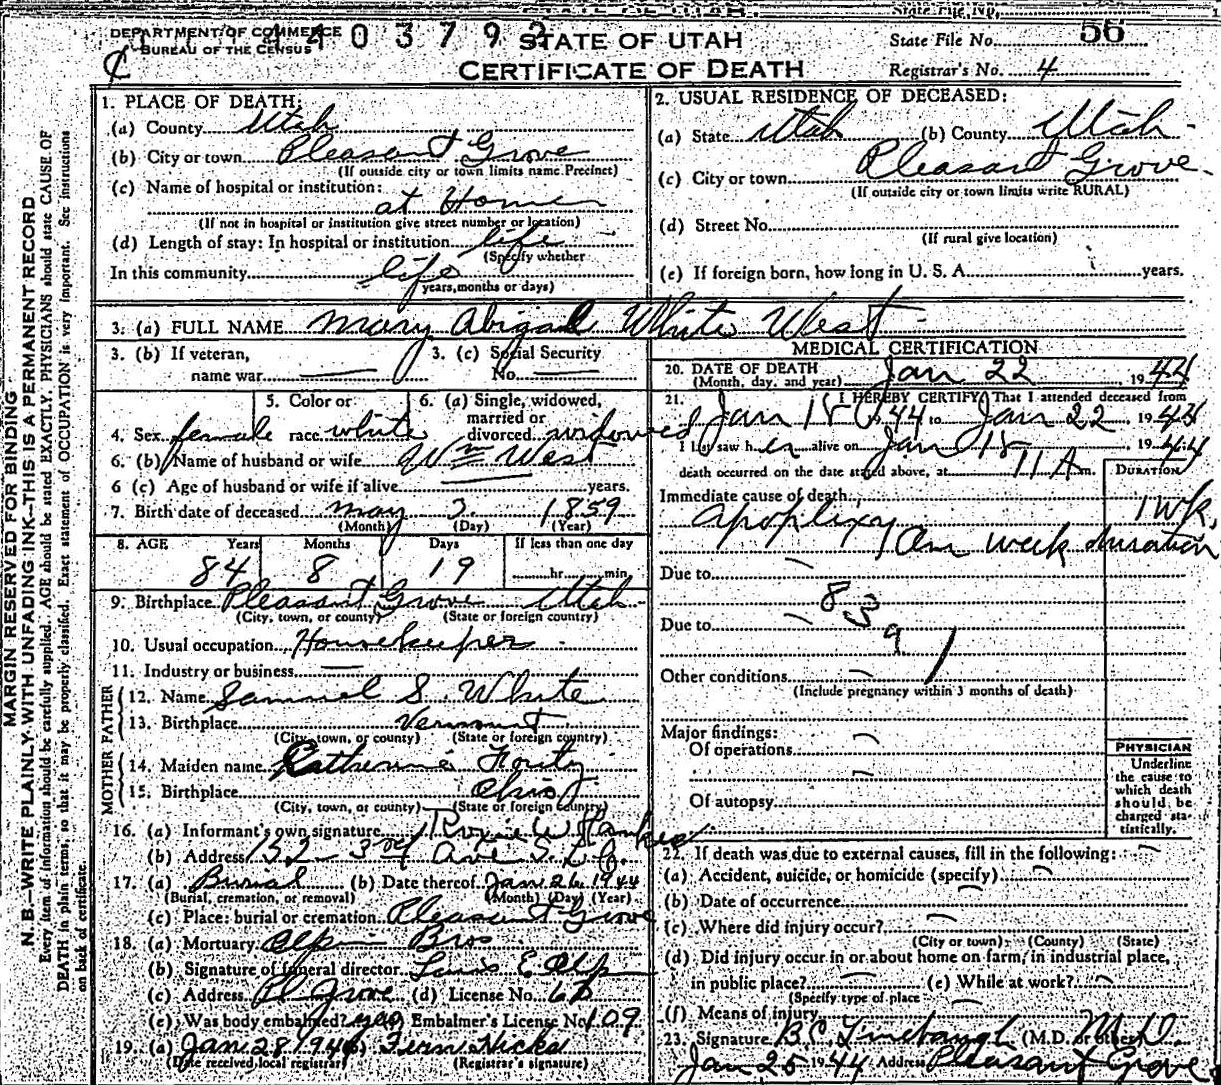 STATE OF UTAH.
State File No.
DEPARTMENT OF COMMERCE
BUREAU OF THE CENSUS
STATE OF UTAH
CERTIFICATE OF DEATH
State File No. 56
Registrar's No. 4
MARGIN RESERVED FOR BINDING
N. B.—WRITE PLAINLY WITH UNFADING INK—THIS IS A PERMANENT RECORD
Every item of information should be carefully supplied. AGE should be stated EXACTLY. PHYSICIANS should state CAUSE OF
DEATH in plain terms, so that it may be properly classified. Exact statement of OCCUPATION is very important. See instructions
on back of certificate.
1. PLACE OF DEATH:
(a) County Utah
(b) City or town Pleasant Grove
(If outside city or town limits name Precinct)
(c) Name of hospital or institution:
at Home
(If not in hospital or institution give street number or location)
(d) Length of stay: In hospital or institution life
(Specify whether
In this community life
years, months or days)
2. USUAL RESIDENCE OF DECEASED:
(a) State Utah (b) County Utah
(c) City or town Pleasant Grove
(If outside city or town limits write RURAL)
(d) Street No.
(If rural give location)
(e) If foreign born, how long in U. S. A. years.
3. (a) FULL NAME Mary Abigail White West
3. (b) If veteran, name war
3. (c) Social Security No.
4. Sex female
5. Color or race white
6. (a) Single, widowed, married or divorced widowed
6. (b) Name of husband or wife Wm West
6 (c) Age of husband or wife if alive years.
7. Birth date of deceased May 3 1859
(Month) (Day) (Year)
8. AGE Years Months Days If less than one day
84 8 19 hr. min.
9. Birthplace Pleasant Grove Utah
(City, town, or county) (State or foreign country)
10. Usual occupation Housekeeper
11. Industry or business
FATHER
12. Name Samuel S. White
13. Birthplace Vermont
(City, town, or county) (State or foreign country)
MOTHER
14. Maiden name Catherine
15. Birthplace Ohio
(City, town, or county) (State or foreign country)
16. (a) Informant's own signature
(b) Address 152 - 3rd Ave S. L. C.
17. (a) Burial (b) Date thereof Jan 26 1944
(Burial, cremation, or removal) (Month) (Day) (Year)
(c) Place: burial or cremation Pleasant Grove
18. (a) Mortuary Bros
(b) Signature of funeral director
(c) Address Pl Grove (d) License No.
(e) Was body embalmed? yes Embalmer's License No. 109
19. (a) Jan 28 194 Fern Hicks
(Date received local registrar) (Registrar's signature)
MEDICAL CERTIFICATION
20. DATE OF DEATH
(Month, day, and year) Jan 22, 1944
21. I HEREBY CERTIFY, That I attended deceased from
Jan 18 44 to Jan 22, 1944
I last saw her alive on Jan 18 1944
death occurred on the date stated above, at 11 A m.
DURATION
Immediate cause of death
Apoplexy 1 wk.
week duration
Due to
83
Due to
9
Other conditions
(Include pregnancy within 3 months of death)
Major findings:
Of operations
Of autopsy
PHYSICIAN
Underline
the cause to
which death
should be
charged sta-
tistically.
22. If death was due to external causes, fill in the following:
(a) Accident, suicide, or homicide (specify)
(b) Date of occurrence
(c) Where did injury occur?
(City or town) (County) (State)
(d) Did injury occur in or about home on farm, in industrial place,
in public place? (e) While at work?
(Specify type of place
(f) Means of injury
23. Signature B.C. Linebaugh (M.D. or other) M.D.
Jan 25 1944 Address Pleasant Grove